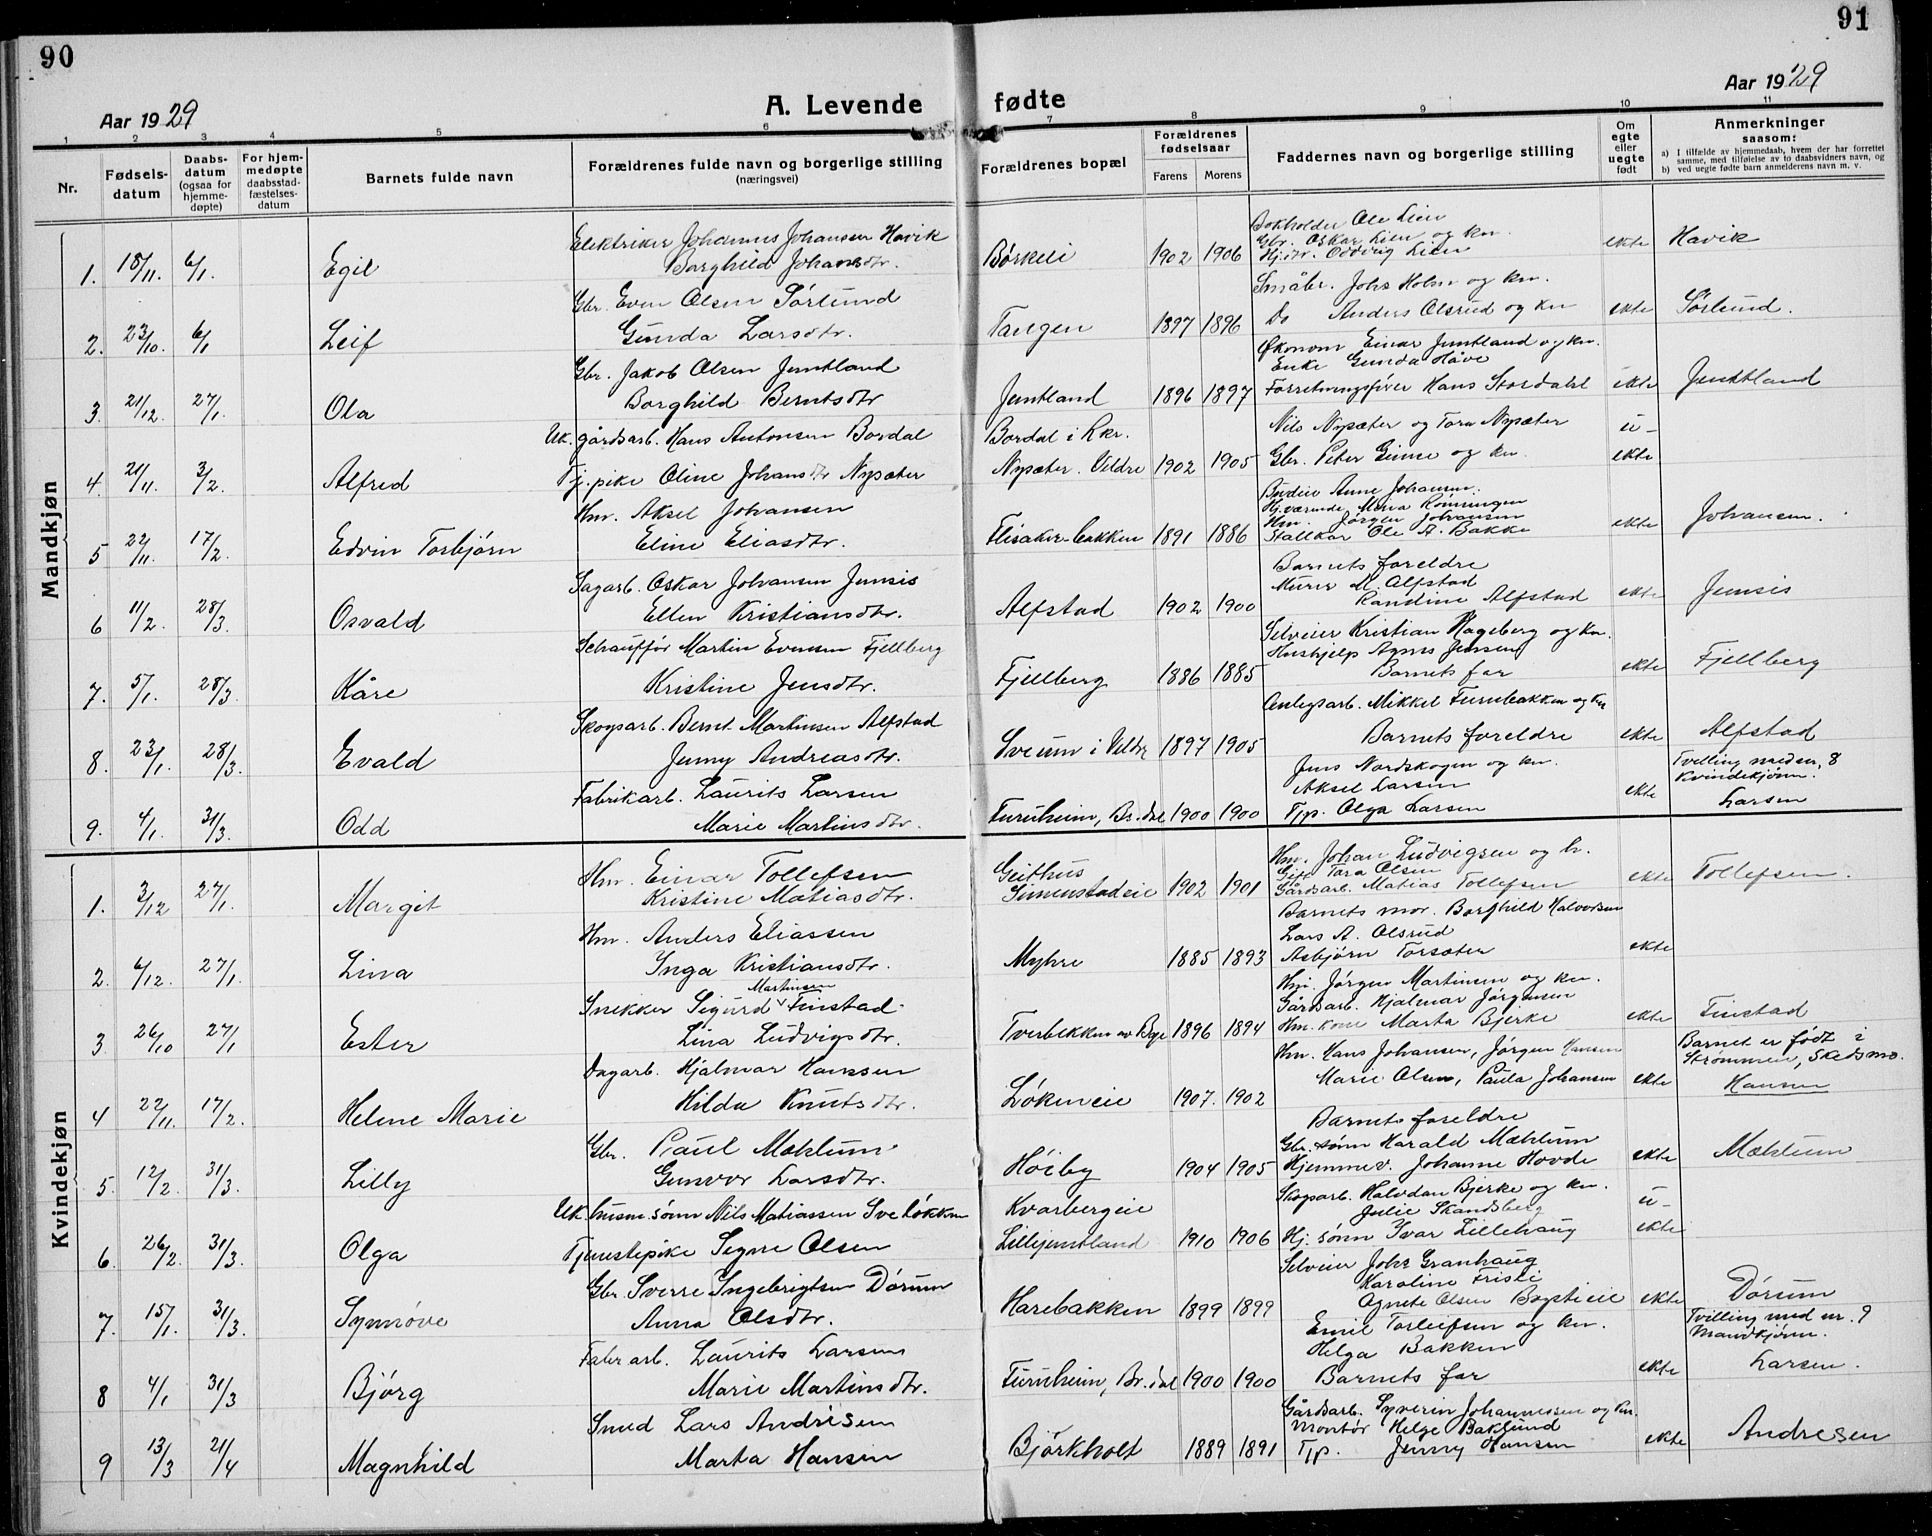 90
91
Aar 1929
A. Levende fødte
Aar 1929
1 2 3 4 5 6 7 8 9 10 11
Nr.
Fødsels-
datum
Daabs-
datum
(ogsaa for
hjemme-
døpte)
For hjem-
medøpte
daabsstad-
fæstelses-
datum
Barnets fulde navn
Forældrenes fulde navn og borgerlige stilling
(næringsvei)
Forældrenes bopæl
Forældrenes
fødselsaar
Farens Morens
Faddernes navn og borgerlige stilling
Om
egte
eller
uegte
født
Anmerkninger
saasom:
a) I tilfælde av hjemmedaab, hvem der har forrettet
samme, med tilføielse av to daabsvidners navn, og
b) ved uegte født barn anmelderens navn m. v.
Mandkjøn
Elektriker Johannes Johansen Havik
Borghild Johansdtr.
1. 18/11. 6/1. Egil
Børkeli 1902 1906
Bokholder Ole Lien
Gbr. Oskar Lien og kn.
Hj.dtr. Oddvig Lien
ekte Havik
Gbr. Even Olsen Sørlund
Gunda Larsdtr.
2. 23/10. 6/1 Leif
Tangen 1897 1896
Småbr. Johs Holm og kn.
Do Anders Olsrud og kn
ekte Sørlund.
Gbr. Jakob Olsen Jemtland
Borghild Berntsdtr
3 21/12. 27/1. Ola
Jemtland 1896 1897
Økonom Einar Jemtland og kn.
Enke Gunda Håve
Forretningsfører Hans Stordahl
ekte Jemtland
Uk. gårdsarb. Hans Antonsen Bordal
Tj. pike Oline Johansdtr Nysæter
4. 21/11. 3/2. Alfred
Bordal i Rkr.
Nysæter. Veldre 1902 1905
Nils Nysæter og Tora Nysæter
Gbr. Peter Grime og kn.
u-
ekte
Hm. Aksel Johansen
Eline Eliasdtr.
5 22/11. 17/2. Edvin Torbjørn
Flisaker-bakken 1891 1886
Budeie Anne Johansen.
Hj.værende Mina Rømningen
Hm. Jørgen Johansen
Stallkar Ole A. Bakke
ekte Johansen.
Sagarb. Oskar Johansen Jemsis
Ellen Kristiansdtr.
6 11/2. 28/3. Osvald
Alfstad 1902 1900
Barnets foreldre
Murer M. Alfstad
Randine Alfstad
ekte Jemsis
Schauffør Martin Evensen Fjellberg
Kristine Jensdtr.
7. 5/1. 28/3. Kåre
Fjellberg 1886 1885
Selveier Kristian Hageberg og kn.
Hushjelp Agnes Jensen
Barnets far
ekte Fjellberg
Skogsarb. Bernt Martinsen Alfstad
Jenny Andreasdtr.
8. 23/1. 28/3. Evald
Sveum i Veldre 1897 1905
Anlegsarb. Mikkel Furubakken og kn
Barnets foreldre
ekte Alfstad
Fabrikarb. Laurits Larsen
Marie Martinsdtr.
9. 4/1. 31/3. Odd
Furuheim, Br.dal 1900 1900
Jens Nordskogen og kn.
Aksel Larsen
Tjp. Olga Larsen
ekte
Tvilling med nr. 8
Kvindekjønn.
Larsen
Kvindekjøn
Hm. Einar Tollefsen
Kristine Matiasdtr.
1. 3/12 27/1. Margit
Geithus
Simenstadeie 1902 1901
Hm. Johan Ludvigsen og h.
Gift Tora Olsen
Gårdsarb. Matias Tollefsen
ekte Tollefsen.
Hm. Anders Eliassen
Inga Kristiansdtr.
2. 6/12. 27/1. Lina
Myhre 1885 1893
Barnets mor. Borghild Halvorsen
Lars A. Olsrud
Asbjørn Torsæter
ekte
Snekker Sigurd Martinsen Finstad
Lina Ludvigsdtr.
3 26/10 27/1 Ester
Tverbekken av Bye 1896 1894
Hm. Jørgen Martinsen og kn.
Gårdsarb. Hjalmar Jørgensen
Hm. kone Marta Bjerke
ekte Finstad
Dagarb. Hjalmar Hanssen
Hilda Knutsdtr.
4 22/11. 17/2. Helene Marie
Løkeneie 1907. 1902
Hm. Hans Johansen, Jørgen Hansen
Marie Olsen, Paula Johansen
ekte
Barnet er født i
Strømmen, Skedsmo.
Hansen
Gbr. Paul Mæhlum
Gunvor Larsdtr.
5. 12/2. 31/3. Lilly
Høiby 1904 1905
Barnets foreldre
Gbr. sønn Harald Mæhlum
Hjemmev. Johanne Hovde
ekte Mæhlum
Uk. husm. sønn Nils Matiassen Sveløkken
Tjenestepike Signe Olsen
6. 26/2. 31/3. Olga
Kvarbergeie
Lillejemtland 1910 1906
Skogsarb. Halvdan Bjerke og kn.
Julie Skandsberg
Hj. sønn Ivar Lillehaug
u-
ekte
Gbr. Sverre Ingebrigtsen Dørum
Anna Olsdtr.
7. 15/1. 31/3. Synnøve
Harebakken 1899 1899
Selveier Johs Granhaug
Karoline Fristi
Agnete Olsen Bøystieie
ekte Dørum
Fabr arb. Laurits Larsen
Marie Martinsdtr.
8 4/1 31/3 Bjørg
Furuheim, Br.dal 1900 1900
Emil Torleifsen og kn.
Helga Bakken
Barnets far
ekte
Tvilling med nr. 9
Mandkjønn.
Larsen.
Smed Lars Andresen
Marta Hansen
9 13/3 21/4 Magnhild
Bjørkholt 1889 1891
Gårdsarb. Syverin Johannessen og kn.
Montør Helge Baklund
Tjp. Jenny Hansen
ekte Andresen